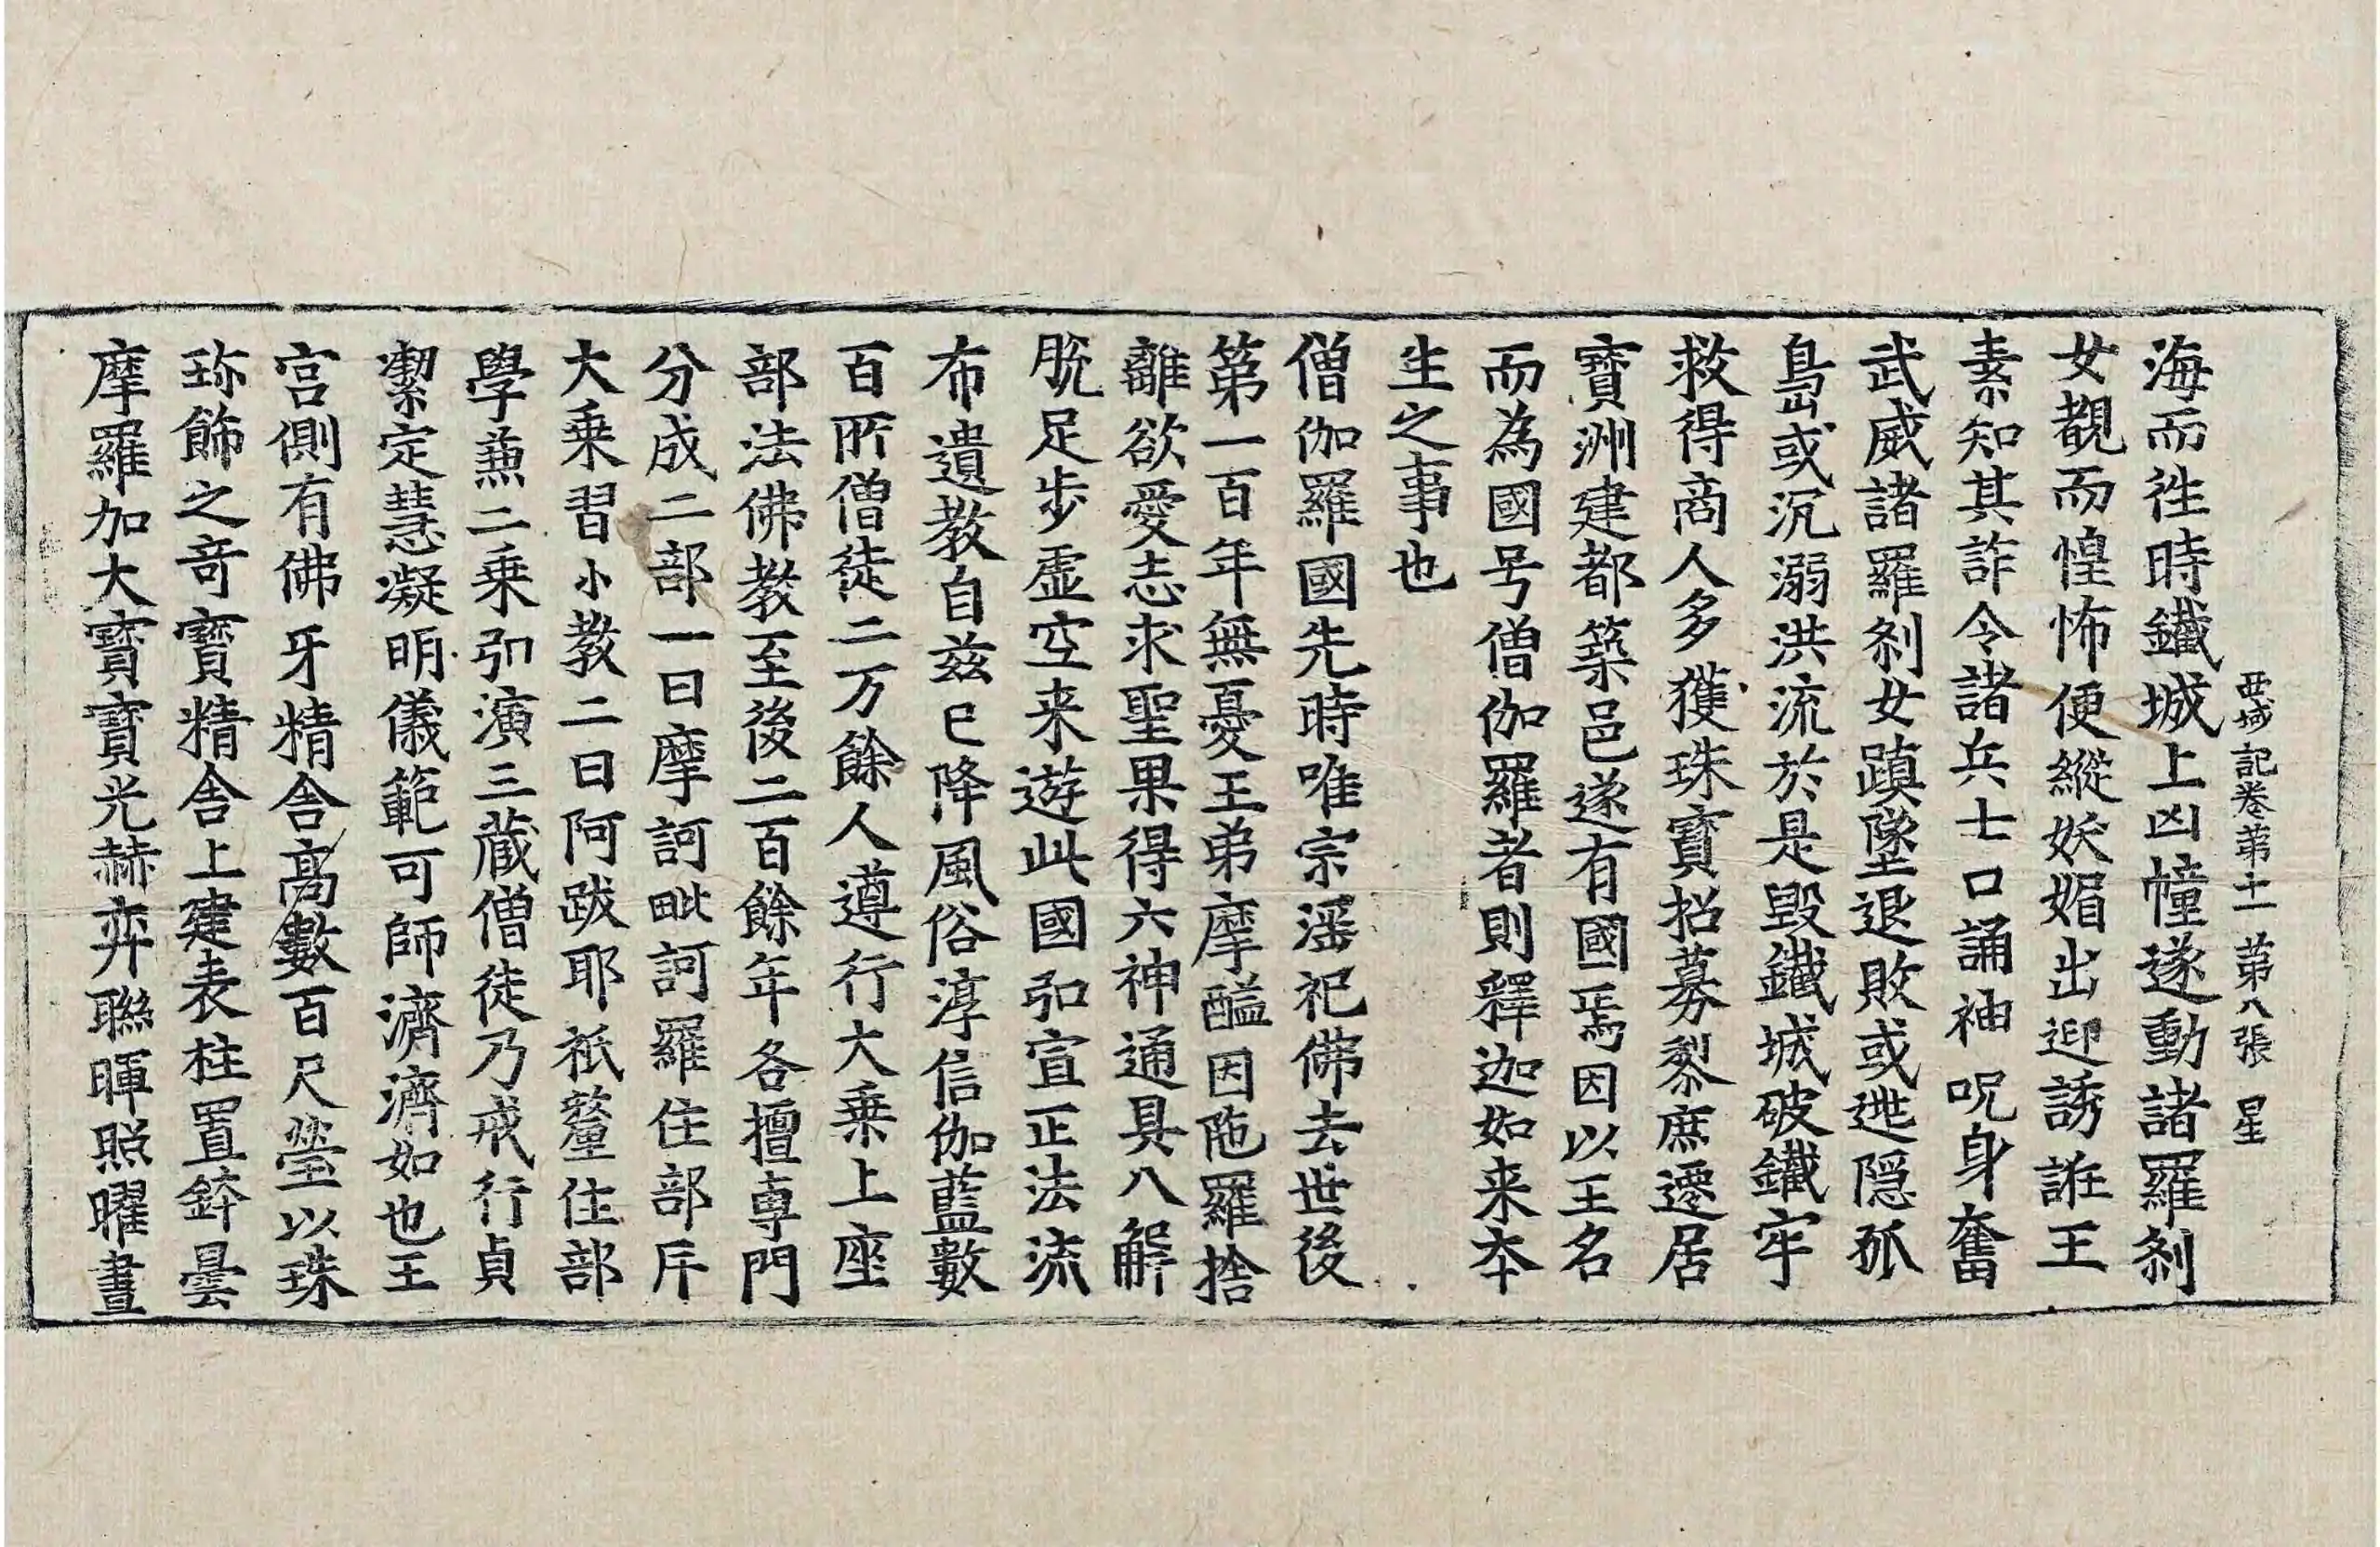 西域記卷第十一 第八張 星
海而往時鐵城上凶幢遂動諸羅刹
女覩而惶怖便縱妖媚出迎誘誑王
素知其詐令諸兵士口誦神呪身奮
武威諸羅刹女蹎墜退敗或逃隠孤
島或沉溺洪流於是毀鐵城破鐵牢
救得商人多獲珠寶招募黎庶遷居
寶洲建都築邑遂有國焉因以王名
而為國号僧伽羅者則釋迦如来夲
生之事也
僧伽羅國先時唯宗滛祀佛去世後
第一百年無憂王弟摩醯因陁羅捨
離欲愛志求聖果得六神通具八解
脫足步虛空来遊此國弘宣正法流
布遺教自兹已降風俗淳信伽藍數
百所僧徒二万餘人遵行大乗上座
部法佛教至後二百餘年各擅專門
分成二部一曰摩訶毗訶羅住部斥
大乗習小教二曰阿跋耶祇釐住部
學兼二乗弘演三藏僧徒乃戒行貞
潔定慧凝明儀範可師濟濟如也王
宮側有佛牙精舍高數百尺瑩以珠
珎飾之奇寶精舍上建表柱置鉢曇
摩羅加大寶寶光赫弈聯暉照曜晝